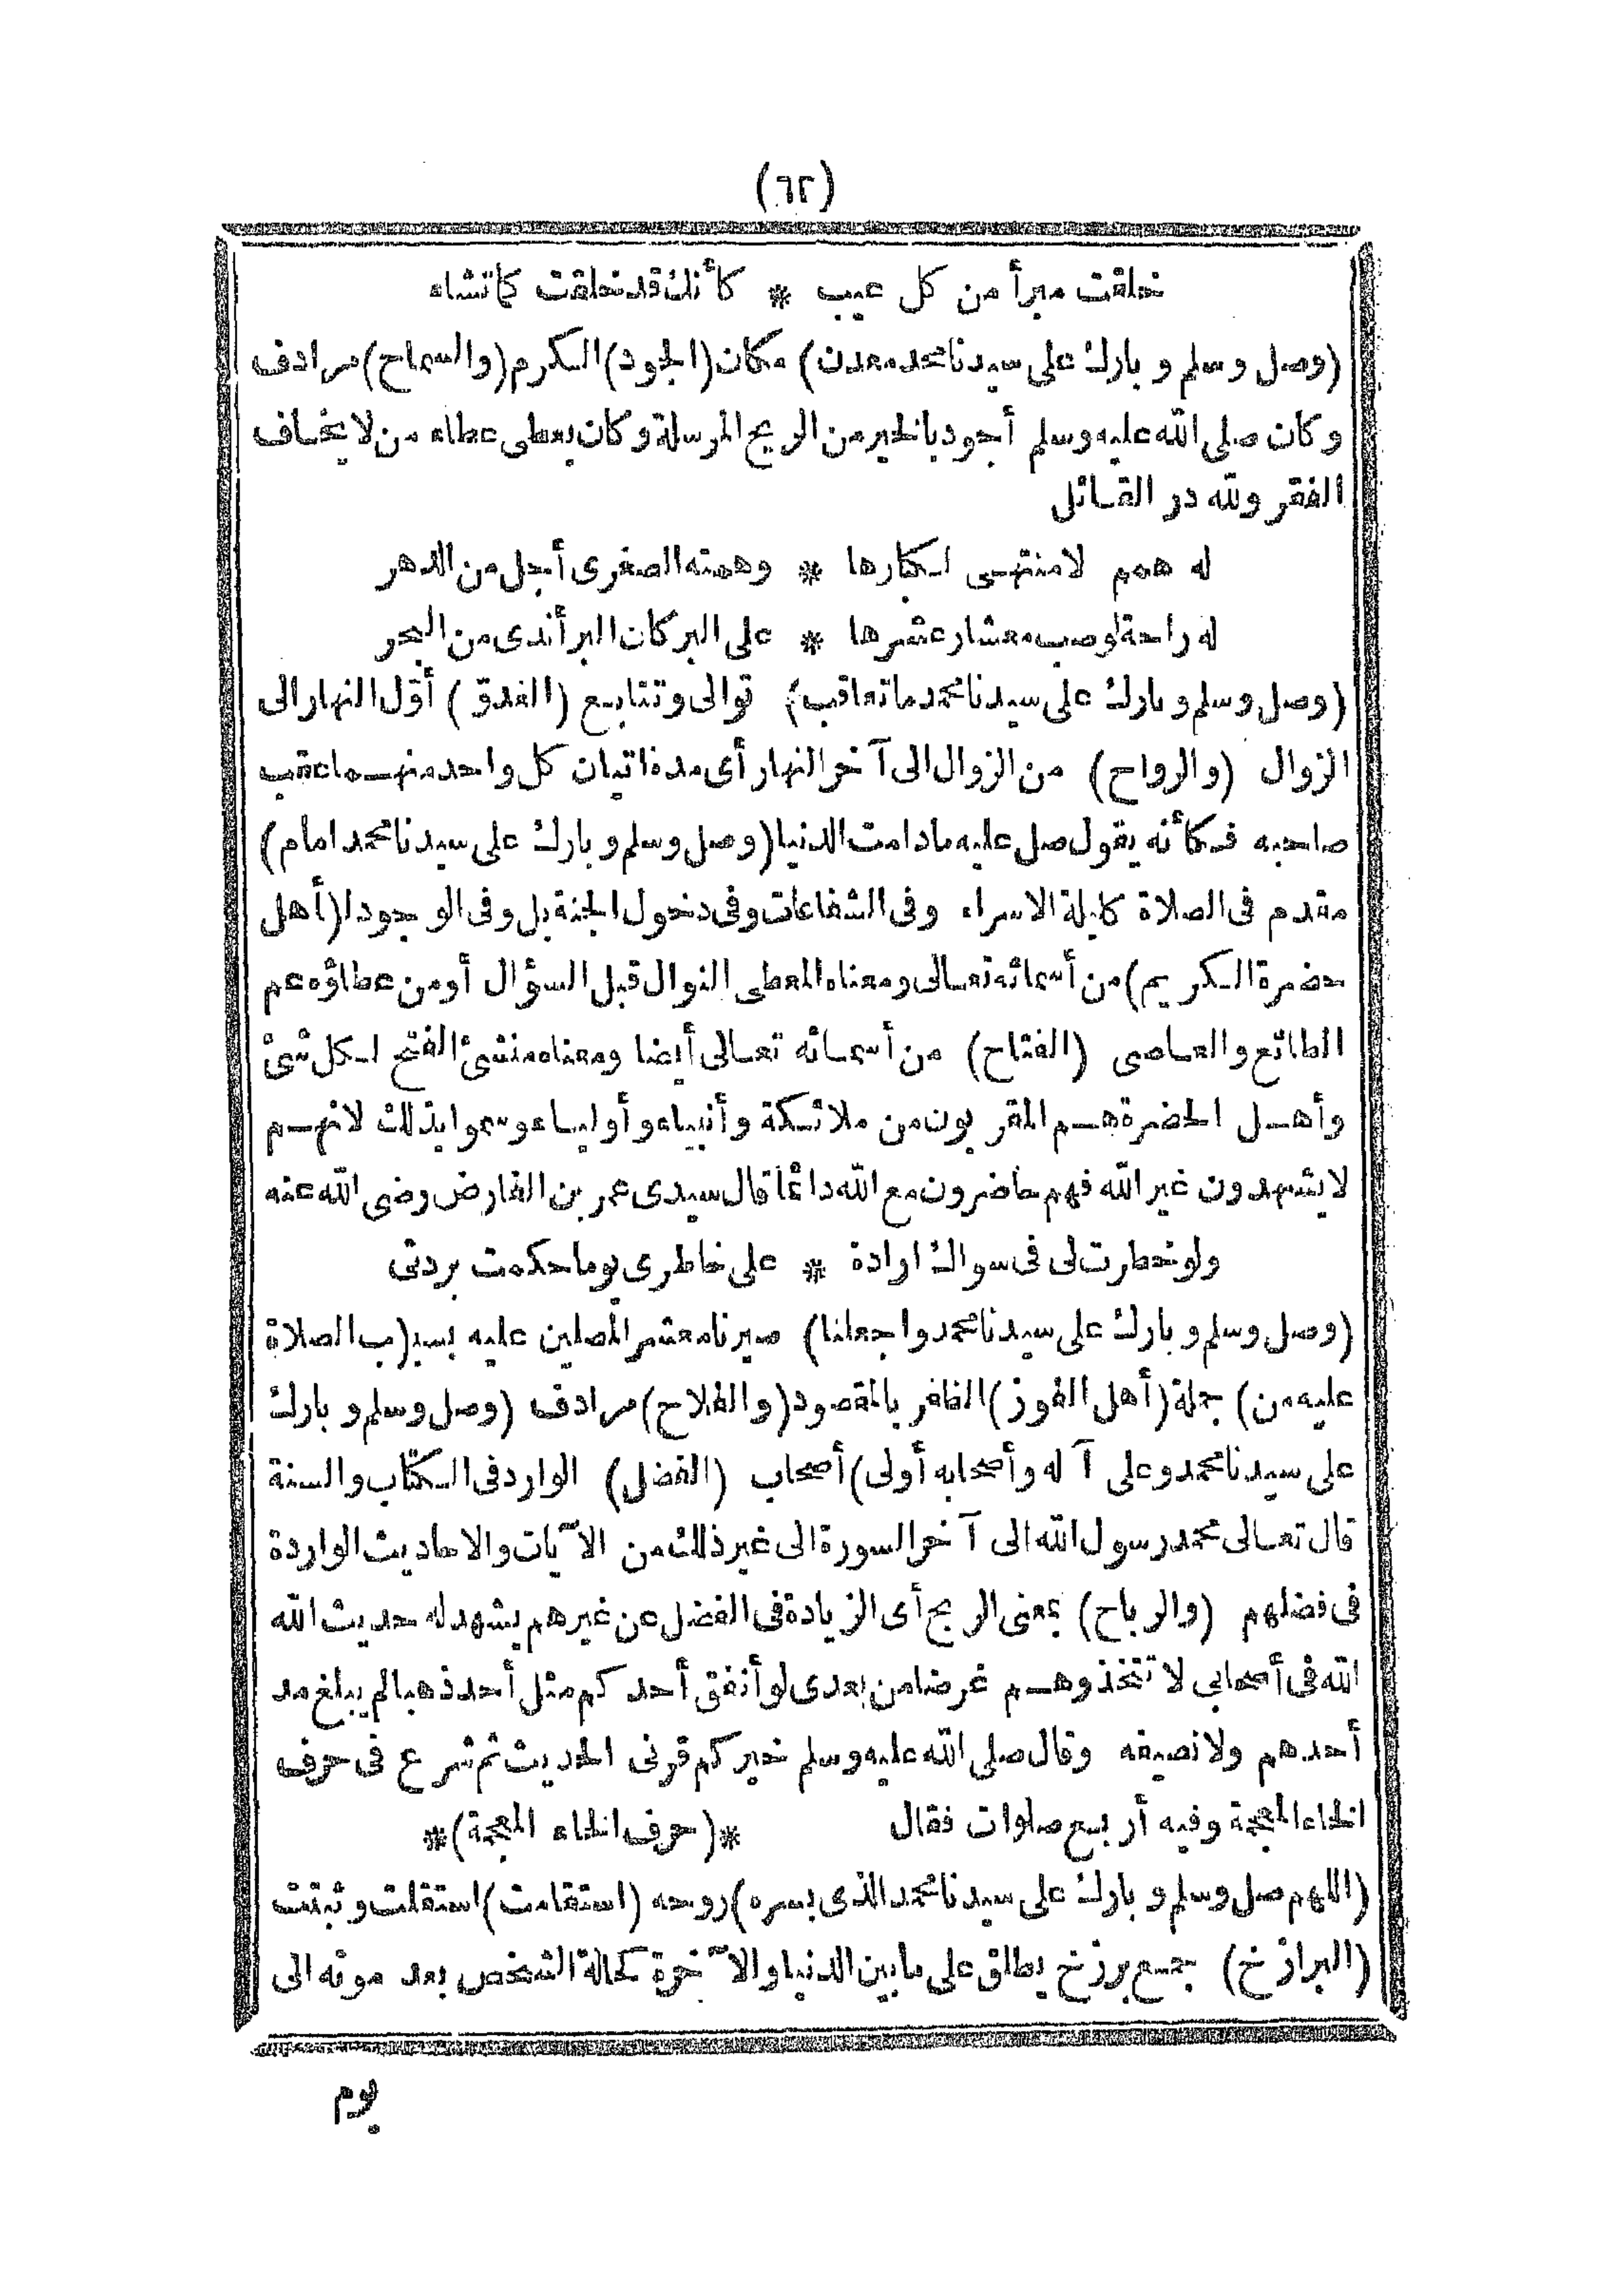 (٦٢)
خلقت مبرأ من كل عيب * كأنك قد خلقت كما تشاء
(وصل وسلم وبارك على سيدنا محمد معدن) مكان (الجود) الكرم (والسماح) مرادف
وكان صلى الله عليه وسلم أجود بالخير من الريح المرسلة وكان يعطى عطاء من لا يخاف
الفقر ولله در القائل
له همم لا منتهى لكبارها * وهمته الصغرى أجل من الدهر
له راحة لو صب معشار عشرها * على البر كان البر أندى من البحر
(وصل وسلم وبارك على سيدنا محمد ما تعاقب) توالى وتتابع (الغدق) أول النهار الى
الزوال (والرواح) من الزوال الى آخر النهار أى مدة اتيان كل واحد منهما عقب
صاحبه فكأنه يقول صل عليه ما دامت الدنيا (وصل وسلم وبارك على سيدنا محمد امام)
مقدم فى الصلاة كليلة الاسراء وفى الشفاعات وفى دخول الجنة بل وفى الوجود ا(أهل
حضرة الكريم) من أسمائه تعالى ومعناه المعطى النوال قبل السؤال أو من عطاؤه عم
الطائع والعاصى (الفتاح) من أسمائه تعالى أيضا ومعناه منشئ الفتح لكل شئ
وأهل الحضرة هم المقربون من ملائكة وأنبياء وأولياء وسموا بذلك لانهم
لا يشهدون غير الله فهم حاضرون مع الله دائما قال سيدى عمر بن الفارض رضى الله عنه
ولو خطرت لى فى سواك ارادة * على خاطرى يوما حكمت بردتى
(وصل وسلم وبارك على سيدنا محمد واجعلنا) صيرنا معشر المصلين عليه بسبب (ب الصلاة
عليه من) جملة (أهل الفوز) الظافر بالمقصود (والفلاح) مرادف (وصل وسلم وبارك
على سيدنا محمد وعلى آله وأصحابه أولى) أصحاب (الفضل) الوارد فى الكتاب والسنة
قال تعالى محمد رسول الله الى آخر السورة الى غير ذلك من الآيات والاحاديث الواردة
فى فضلهم (والرباح) بمعنى الربح أى الزيادة فى الفضل عن غيرهم يشهد له حديث الله
الله فى أصحابى لا تتخذوهم غرضا من بعدى لو أنفق أحدكم مثل أحد ذهبا لم يبلغ مد
أحدهم ولا نصيفه وقال صلى الله عليه وسلم خيركم قرنى الحديث ثم شرع فى حرف
الخاء المعجمة وفيه أربع صلوات فقال *(حرف الخاء المعجمة)*
(اللهم صل وسلم وبارك على سيدنا محمد الذى بسره) روحه (استقامت) استقلت وثبتت
(البرازخ) جمع برزخ يطلق على ما بين الدنيا والآخرة كحالة الشخص بعد موته الى
يوم